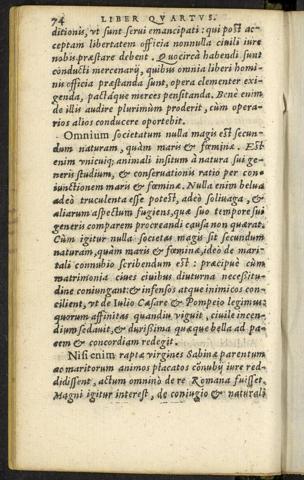 74 LIBER QVARTVS.
ditionis, vt sunt serui emancipati: qui post ac-
ceptam libertatem officia nonnulla ciuili iure
nobis præstare debent. Quocircà habendi sunt
conducti mercenarij, quibus omnia liberi homi-
nis officia præstanda sunt, opera clementer exi-
genda, pactáque merces pensitanda. Benè enim
de illis audire plurimùm proderit, cùm opera-
rios alios conducere oportebit.
Omnium societatum nulla magis est secun-
dum naturam, quàm maris & fœminæ. Est
enim vnicuiq; animali insitum à natura sui ge-
neris studium, & conseruationis ratio per con-
iunctionem maris & fœminæ. Nulla enim belua
adeò truculenta esse potest, adeò soliuaga, &
aliarum aspectum fugiens, quæ suo tempore sui
generis comparem procreandi causa non quærat.
Cùm igitur nulla societas magis sit secundum
naturam, quàm maris & fœminæ, ideo de mari-
tali connubio scribendum est: præcipuè cùm
matrimonia ciues ciuibus diuturna necessitu-
dine coniungant: & infensos atque inimicos con-
cilient, vt de Iulio Cæsare & Pompeio legimus:
quorum affinitas quandiu viguit, ciuile incen-
dium sedauit, & durißima quæque bella ad pa-
cem & concordiam redegit.
Nisi enim raptæ virgines Sabinæ parentum
ac maritorum animos placatos cōnubij iure red-
didissent, actum omninò de re Romana fuisset.
Magni igitur interest, de coniugio & naturali